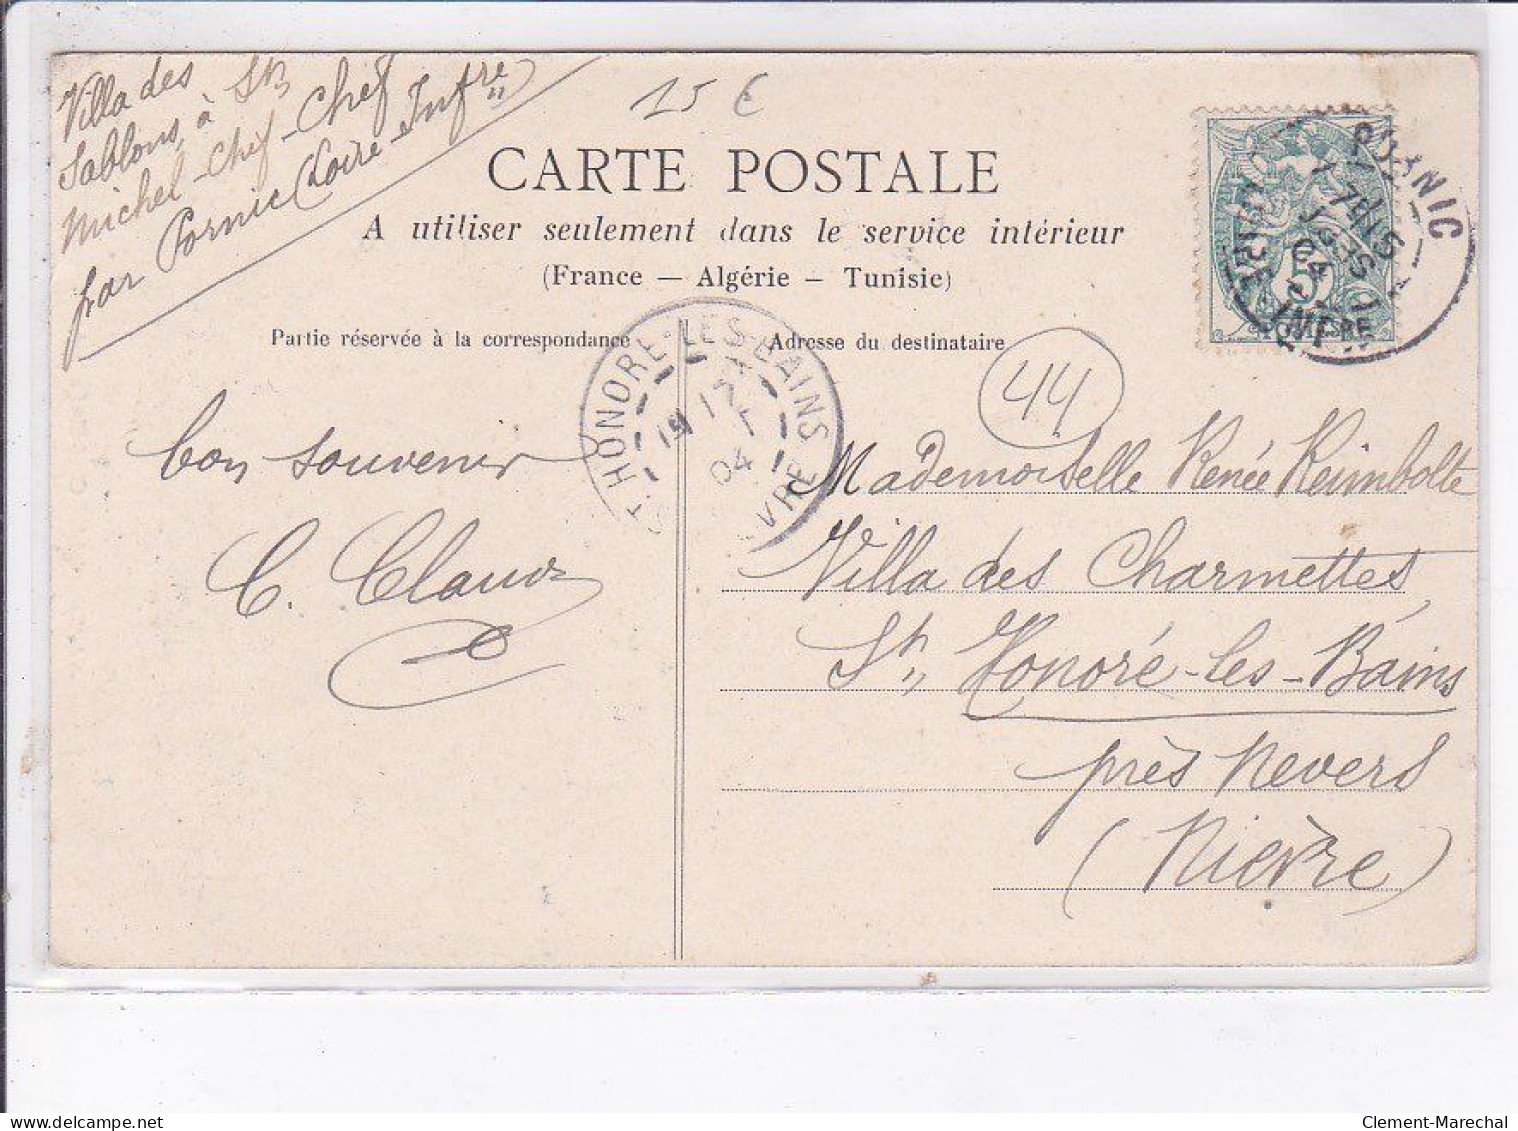 Villa des
Sablons, à St,,
Michel-Chef-Chef
par Pornic (Loire-Infre,,)
15 €
CARTE POSTALE
A utiliser seulement dans le service intérieur
(France — Algérie — Tunisie)
Partie réservée à la correspondance
Adresse du destinataire
44
PORNIC
LOIRE INFRE
04
5
ST HONORE-LES-BAINS
04
bon souvenir
Mademoiselle Renée Reimbolte
Villa des Charmettes
St,, Honoré-les-Bains
près Nevers
(Nièvre)
delcampe.net
Clement-Marechal